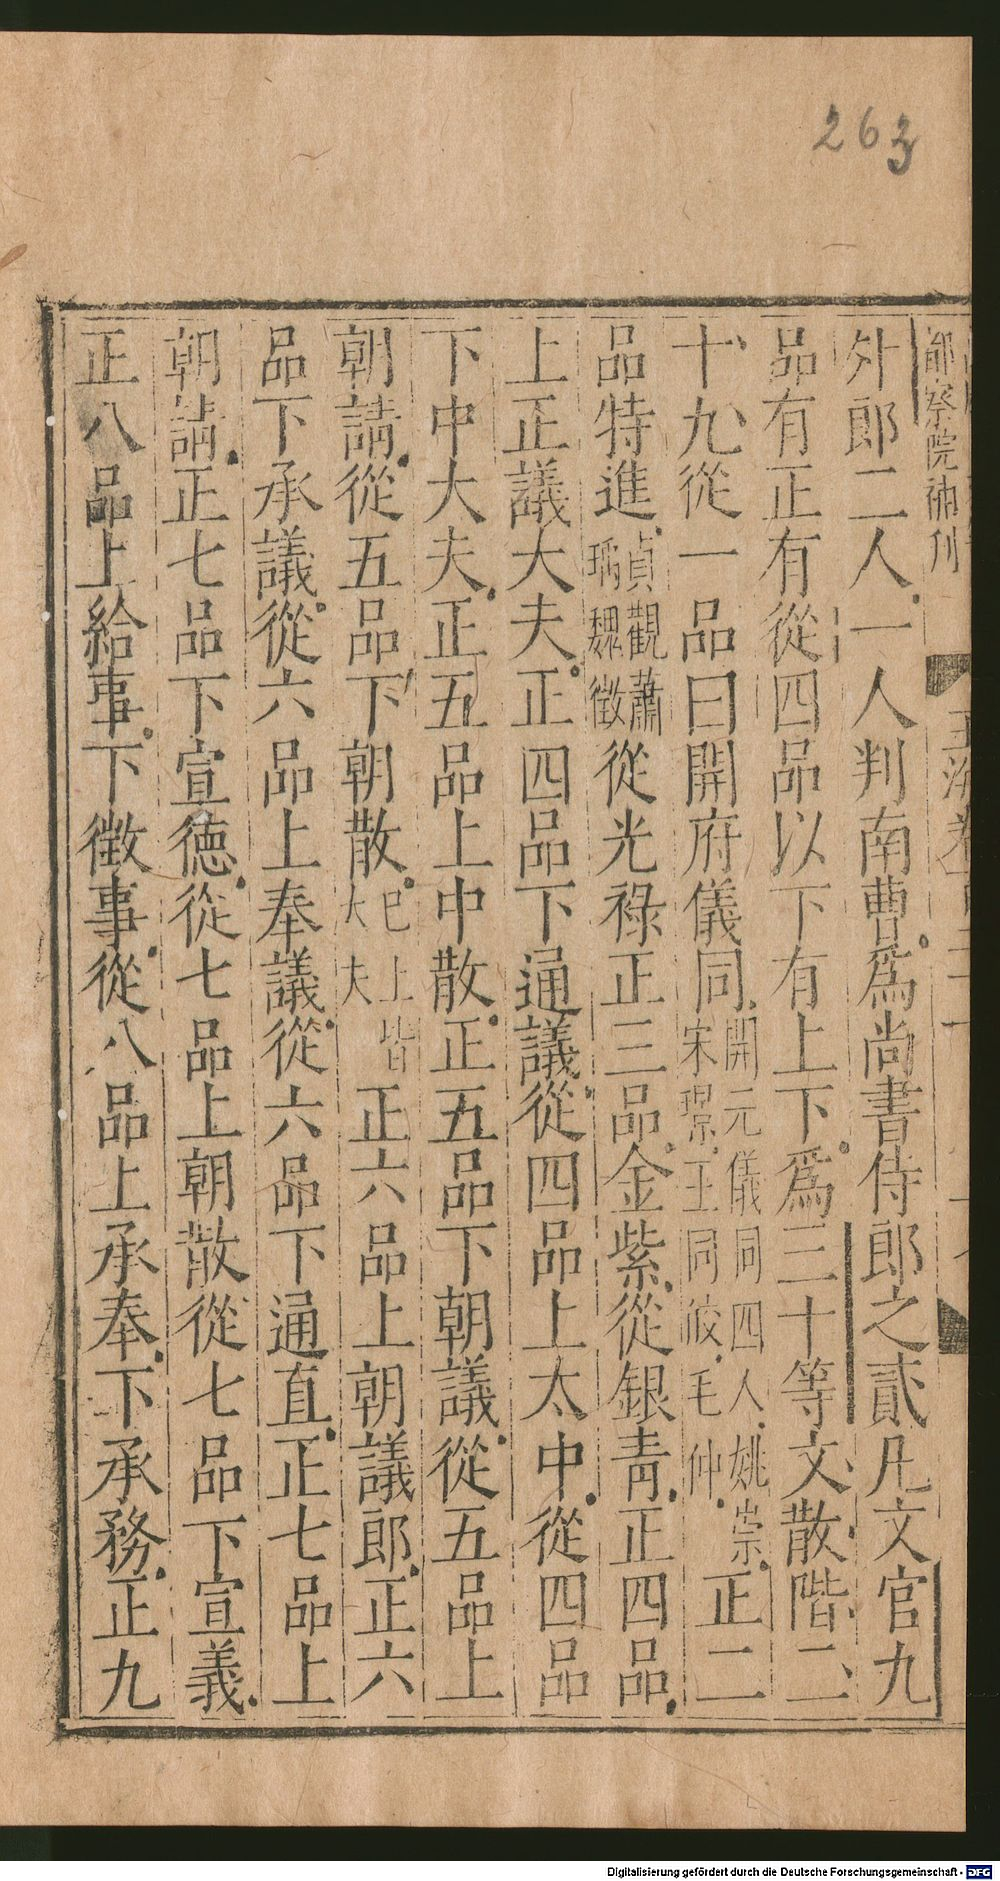 263
都察院補刊
玉海卷
外郎二人一人判南曹爲尚書侍郎之貳凡文官九
品有正有從四品以下有上下爲三十等文散階二
十九從一品曰開府儀同開元儀同四人姚崇宋璟王同皎毛仲正二
品特進貞觀蕭瑀魏徵從光祿正三品金紫從銀青正四品
上正議大夫正四品下通議從四品上太中從四品
下中大夫正五品上中散正五品下朝議從五品上
朝請從五品下朝散已上皆大夫正六品上朝議郎正六
品下承議從六品上奉議從六品下通直正七品上
朝請正七品下宣德從七品上朝散從七品下宣義
正八品上給事下徵事從八品上承奉下承務正九
Digitalisierung gefördert durch die Deutsche Forschungsgemeinschaft - DFG